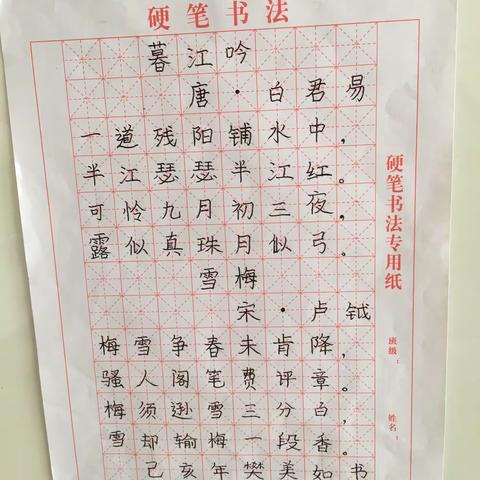 硬笔书法
暮江吟
唐·白君易
一道残阳铺水中，
半江瑟瑟半江红。
可怜九月初三夜，
露似真珠月似弓。
雪梅
宋·卢钺
梅雪争春未肯降，
骚人阁笔费评章。
梅须逊雪三分白，
雪却输梅一段香。
己亥年樊美如书
硬笔书法专用纸
班级：
姓名：